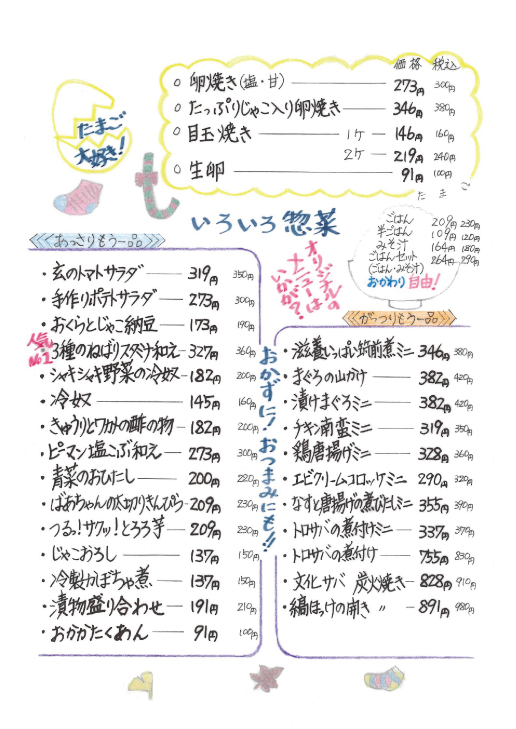 価格 税込
○ 卵焼き(塩・甘) 273円 300円
○ たっぷりじゃこ入り卵焼き 346円 380円
○ 目玉焼き 1ケ 146円 160円
2ケ 219円 240円
○ 生卵 91円 100円
たまご
大好き!
たまご
いろいろ惣菜
ごはん 209円 230円
半ごはん 109円 120円
みそ汁 164円 180円
ごはんセット 264円 290円
(ごはん・みそ汁)
おかわり自由!
オリジナルの
メニューは
いかが?
あっさりもう一品
・玄のトマトサラダ 319円 350円
・手作りポテトサラダ 273円 300円
・おくらとじゃこ納豆 173円 190円
人気
No.1
・3種のねばりスタミナ和え 327円 360円
・シャキシャキ野菜の冷奴 182円 200円
・冷奴 145円 160円
・きゅうりとワカメの酢の物 182円 200円
・ピーマン塩こぶ和え 273円 300円
・青菜のおひたし 200円 220円
・ばあちゃんの太切りきんぴら 209円 230円
・つる!サクッ!とろろ芋 209円 230円
・じゃこおろし 137円 150円
・冷製かぼちゃ煮 137円 150円
・漬物盛り合わせ 191円 210円
・おかかたくあん 91円 100円
おかずに!おつまみにも!!
がっつりもう一品
・滋養いっぱい筑前煮ミニ 346円 380円
・まぐろの山かけ 382円 420円
・漬けまぐろミニ 382円 420円
・チキン南蛮ミニ 319円 350円
・鶏唐揚げミニ 328円 360円
・エビクリームコロッケミニ 290円 320円
・なすと唐揚げの煮びたしミニ 355円 390円
・トロサバの煮付けミニ 337円 370円
・トロサバの煮付け 755円 830円
・文化サバ 炭火焼き 828円 910円
・縞ほっけの開き 〃 891円 980円